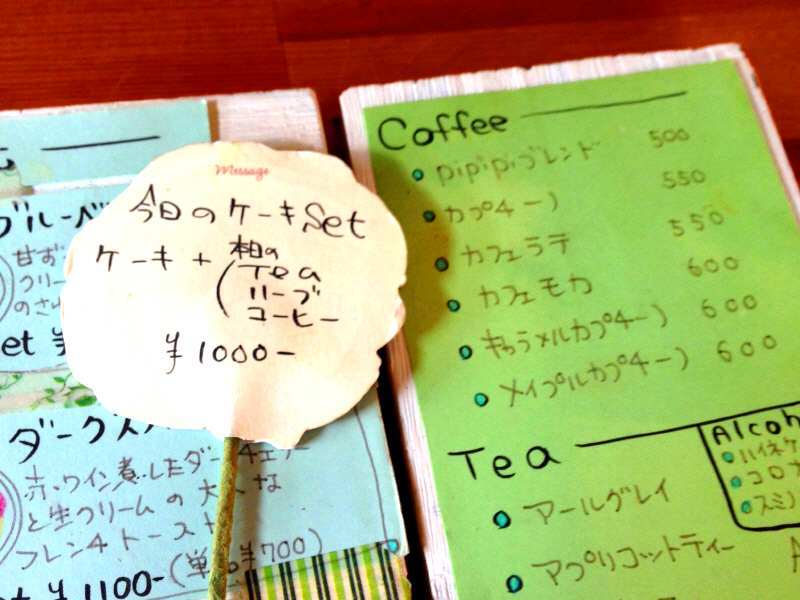 グルーベ
甘ず
クリー
のさ
et ¥
ダークス
赤ワイン煮したダークチェリー
と生クリームの大 な
フレンチトースト
¥1100-(単品¥700)
Message
今日のケーキSet
ケーキ + 本日の
Tea
ハーブ
コーヒー
¥1000-
Coffee
pipipiブレンド 500
カプチーノ 550
カフェラテ 550
カフェモカ 600
キャラメルカプチーノ 600
メイプルカプチーノ 600
Tea
アールグレイ
アプリコットティー
Alcoh
ハイネケ
コロナ
スミノ